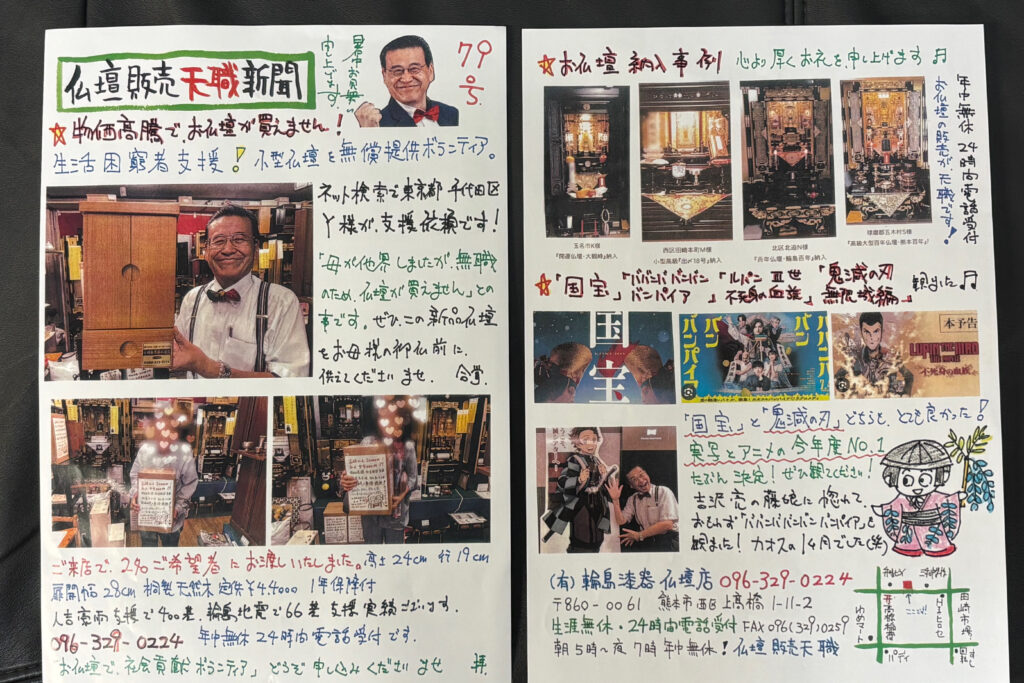 仏壇販売天職新聞
暑中お見舞い
申し上げます。
79号
☆物価高騰で、お仏壇が買えません!
生活困窮者支援! 小型仏壇を無償提供ボランティア。
ネット検索で東京都千代田区
Y様が、支援依頼です!
「母が他界しましたが、無職
のため、仏壇が買えません」との
事です。ぜひ、この新品仏壇
をお母様の御仏前に、
供えてくださいませ。合掌。
ご来店で、2名ご希望者にお渡しいたしました。高さ24cm 行19cm
扉開幅28cm 桐製天然木 定価¥44000 1年保障付
人吉豪雨支援で400基、輪島地震で66基支援実績ございます。
096-329-0224 年中無休24時間電話受付です。
「お仏壇で、社会貢献ボランティア」どうぞ申し込みくださいませ 拝。
☆お仏壇納入事例 心より厚くお礼を申し上げます♬
年中無休24時間電話受付
お仏壇の販売が天職です!
玉名市K様
『開運仏壇・大観峰』納入
西区旧崎本町M様
小型高級『出〆18号』納入
北区北迫N様
『百年仏壇・輪島百年』納入
球磨郡五木村S様
『高級大型百年仏壇・熊本百年』
☆「国宝」「ババンババンバンバンパイア」「ルパン三世 不死身の血族」「鬼滅の刃 無限城編」観ました♬
国宝
ババンババンバンバンパイア
本予告
LUPIN THE IIIRD
不死身の血族
「国宝」と「鬼滅の刃」どちらも、とても良かった!
実写とアニメの今年度NO.1
たぶん決定!ぜひ観てください!
吉沢亮の藤娘に惚れて、
おもわず「ババンババンバンバンパイア」も
観ました!カオスの1ヶ月でした(笑)
(有)輪島漆器仏壇店 096-329-0224
〒860-0061 熊本市西区上高橋1-11-2
生涯無休・24時間電話受付 FAX096(329)0259
朝5時〜夜7時 年中無休!仏壇販売天職
ここ!
高橋稲荷
ゆめマート
田崎市場